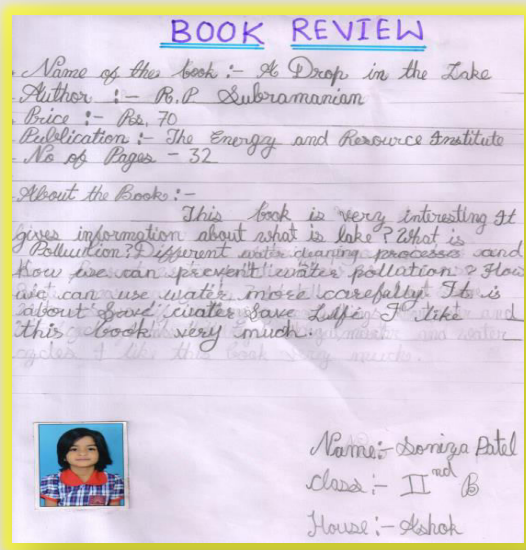 BOOK REVIEW
Name of the book :- A Drop in the Lake
Author :- R.P Subramanian
Price :- Rs. 70
Publication :- The Energy and Resource Institute
No of Pages - 32
About the Book :-
This book is very interesting It
gives information about what is lake? What is
Polluition? Different water cleaning processes and
How we can prevent water pollution? How
we can use water more carefully It is
about Save water Save Life I like
this book very much.
cycles I like this book very much.
Name:- Soniza Patel
Class:- IInd B
House:- Ashok